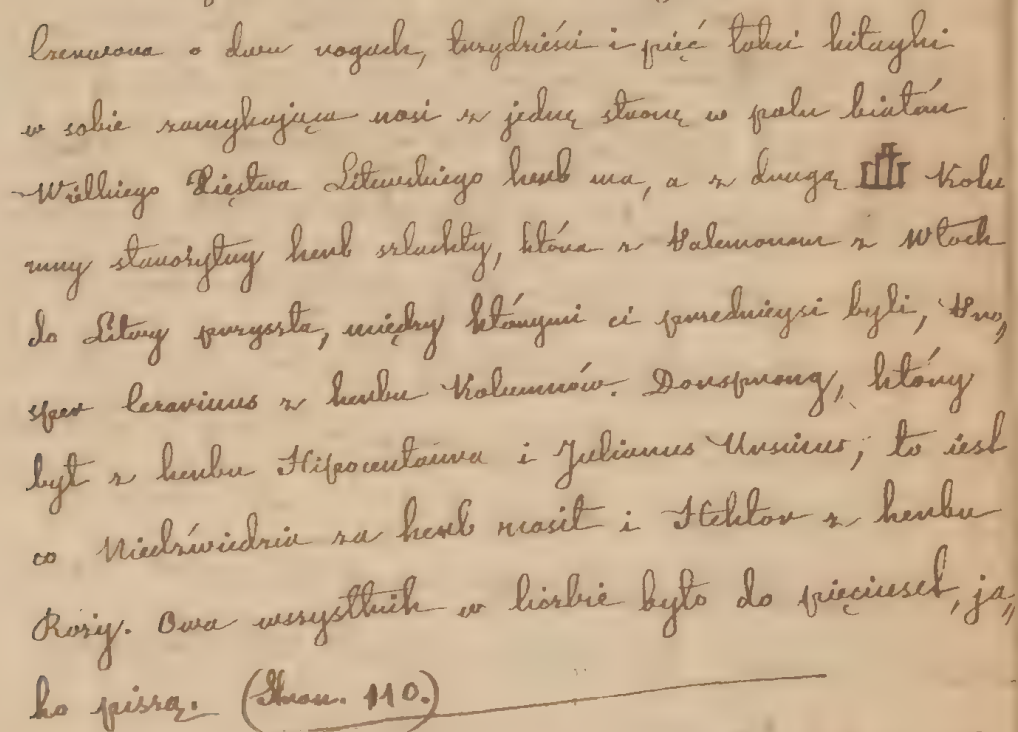 Czerwona o dwu rogach, trzydzieści i pięć łokci kitayki
w sobie zamykająca nosi z jedną stronę w polu białán
Wielkiego Xięstwa Litewskiego herb ma, a z drugą Kolu
mny starożytny herb szlachty, która z Palemonam z Włoch
do Litwy przyszła, między którymi ci przednieysi byli, Pro„
sper Cezarinus z herbu Kolumnów. Dorsprong, który
był z herbu Hipocentaura i Julianus Ursinus, to iest
co Niedźwiedzia za herb nosił i Hektor z herbu
Roży. Owa wszystkich w liczbie było do pięciuset, ja„
ko piszą. (Stron. 110.)